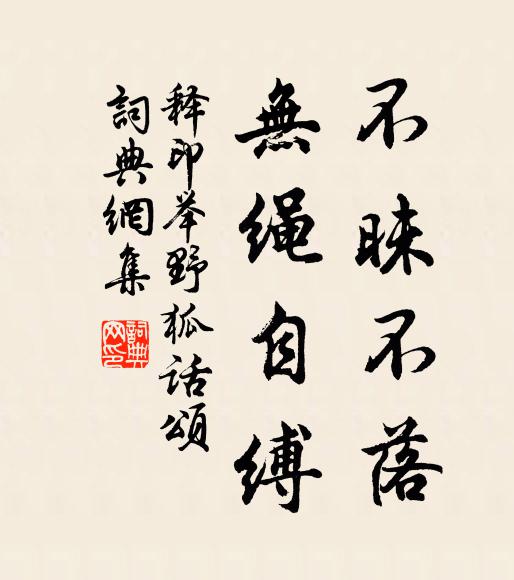 不昧不落
無绳自缚
释印举野狐话頌
詞典網集
詞典網印